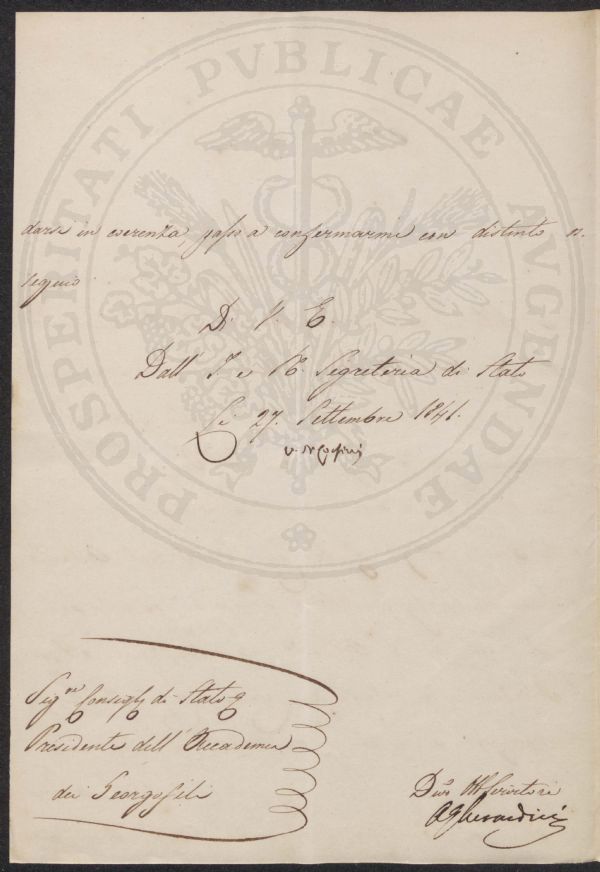 PROSPERITATI PVBLICAE AVGENDAE
darsi in coerenza passo a confermarmi con distinto os-
sequio
D. V. E.
Dall' I. e R. Segreteria di Stato
Li 27. Settembre 1841.
Sig.re Consigl. di Stato
Presidente dell' Accademia
dei Georgofili
Dev.o Servitore